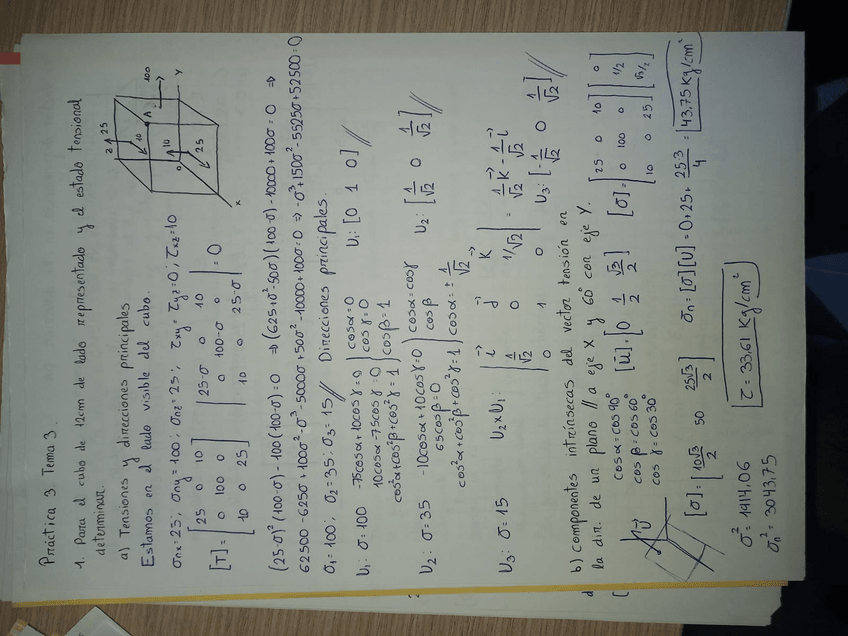 Práctica 3 Tema 3.
1. Para el cubo de 12cm de lado representado y el estado tensional
determinar.
a) Tensiones y direcciones principales
Estamos en el lado visible del cubo.
z
25
10
A
100
Y
10
25
x
σnx=25; σny=100; σnz=25; τxy=τyz=0; τxz=10
[T]= [25 0 10
0 100 0
10 0 25]
|25-σ 0 10
0 100-σ 0
10 0 25-σ| = 0
(25-σ)²(100-σ)-100(100-σ)=0 ⇒ (625+σ²-50σ)(100-σ)-10000+100σ=0 ⇒
62500-625σ+100σ²-σ³-5000σ+50σ²-10000+100σ=0 ⇒ -σ³+150σ²-5525σ+52500=0
σ₁=100; σ₂=35; σ₃=15// Direcciones principales.
U₁: σ=100 -75cosα+10cosγ=0 } cosα=0 U₁:[0 1 0]//
10cosα-75cosγ=0 } cosγ=0
cos²α+cos²β+cos²γ=1 } cosβ=1
U₂: σ=35 -10cosα+10cosγ=0 } cosα=cosγ U₂:[1/√2 0 1/√2]//
65cosβ=0 } cosβ
cos²α+cos²β+cos²γ=1 } cosα=±1/√2
U₃: σ=15 U₂×U₁: |i j K
1/√2 0 1/√2
0 1 0| = 1/√2 K - 1/√2 i U₃:[-1/√2 0 1/√2]//
b) componentes intrínsecas del vector tensión en
la dir. de un plano // a eje X y 60° con eje Y.
U
cosα=cos90°
cosβ=cos60°
cosγ=cos30°
[U]=[0 1/2 √3/2]
[σ]=[25 0 10
0 100 0
10 0 25] [0
1/2
√3/2]
[σ]=[10√3/2 50 25√3/2] σn=[σ][U]=0+25+25·3/4=43,75 Kg/cm²
σ²=1914,06
σn²=3043,75
τ=33,61 Kg/cm²